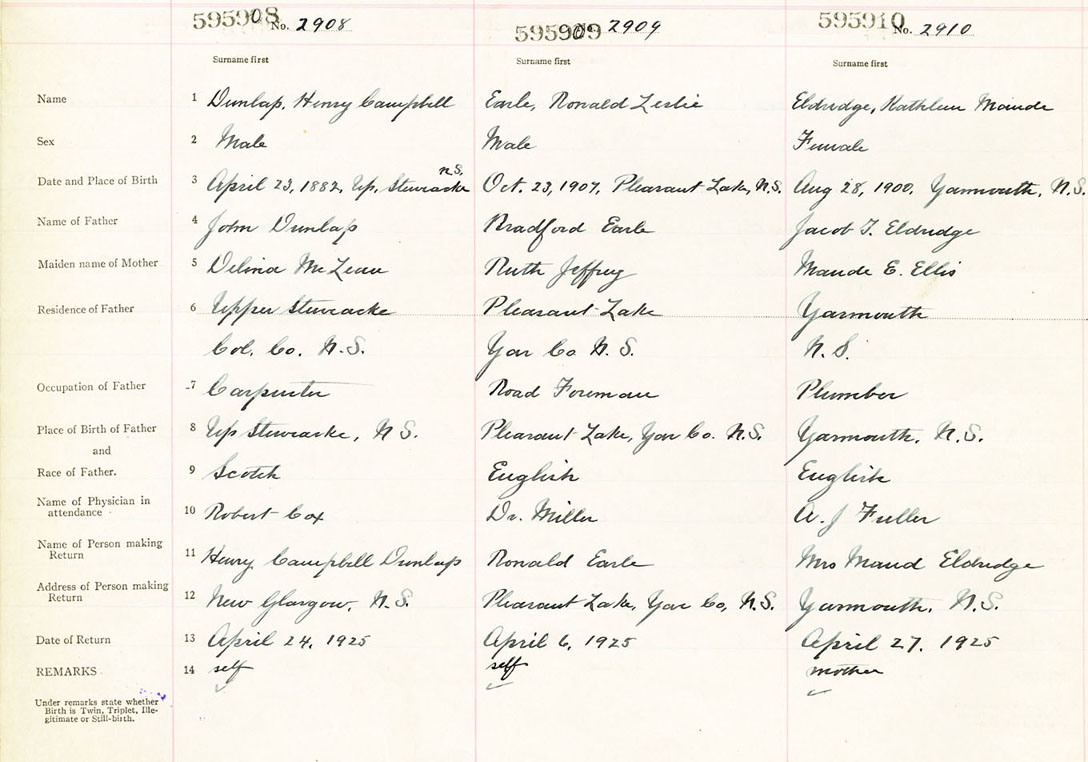 595908 No. 2908 595909 2909 595910 No. 2910
Surname first Surname first Surname first
Name 1 Dunlap, Henry Campbell Earle, Ronald Leslie Eldridge, Kathleen Maude
Sex 2 Male Male Female
Date and Place of Birth 3 April 23, 1882, Up. Stewiacke N.S. Oct. 23, 1907, Pleasant Lake, N.S. Aug 28, 1900, Yarmouth, N.S.
Name of Father 4 John Dunlap Bradford Earle Jacob T. Eldridge
Maiden name of Mother 5 Delina McLean Ruth Jeffrey Maude E. Ellis
Residence of Father 6 Upper Stewiacke Pleasant Lake Yarmouth
Col. Co. N.S. Yar Co N.S. N.S.
Occupation of Father 7 Carpenter Road Foreman Plumber
Place of Birth of Father 8 Up Stewiacke, N.S. Pleasant Lake, Yar Co. N.S. Yarmouth, N.S.
and
Race of Father. 9 Scotch English English
Name of Physician in
attendance 10 Robert Cox Dr. Miller A. J Fuller
Name of Person making
Return 11 Henry Campbell Dunlap Ronald Earle Mrs Maud Eldridge
Address of Person making
Return 12 New Glasgow, N.S. Pleasant Lake, Yar Co, N.S. Yarmouth, N.S.
Date of Return 13 April 24, 1925 April 6, 1925 April 27, 1925
REMARKS 14 self self mother
Under remarks state whether
Birth is Twin, Triplet, Ille-
gitimate or Still-birth.